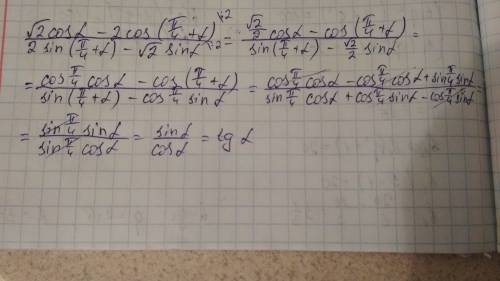 (√2 cosα − 2cos(π/4 + α))/(2 sin(π/4 + α) − √2 sinα) |:2 |:2 = (√2/2 cosα − cos(π/4 + α))/(sin(π/4 + α) − √2/2 sinα) =
= (cos π/4 cosα − cos(π/4 + α))/(sin(π/4 + α) − cos π/4 sinα) = (cos π/4 cosα − cos π/4 cosα + sin π/4 sinα)/(sin π/4 cosα + cos π/4 sinα − cos π/4 sinα) =
= (sin π/4 sinα)/(sin π/4 cosα) = sinα/cosα = tg α